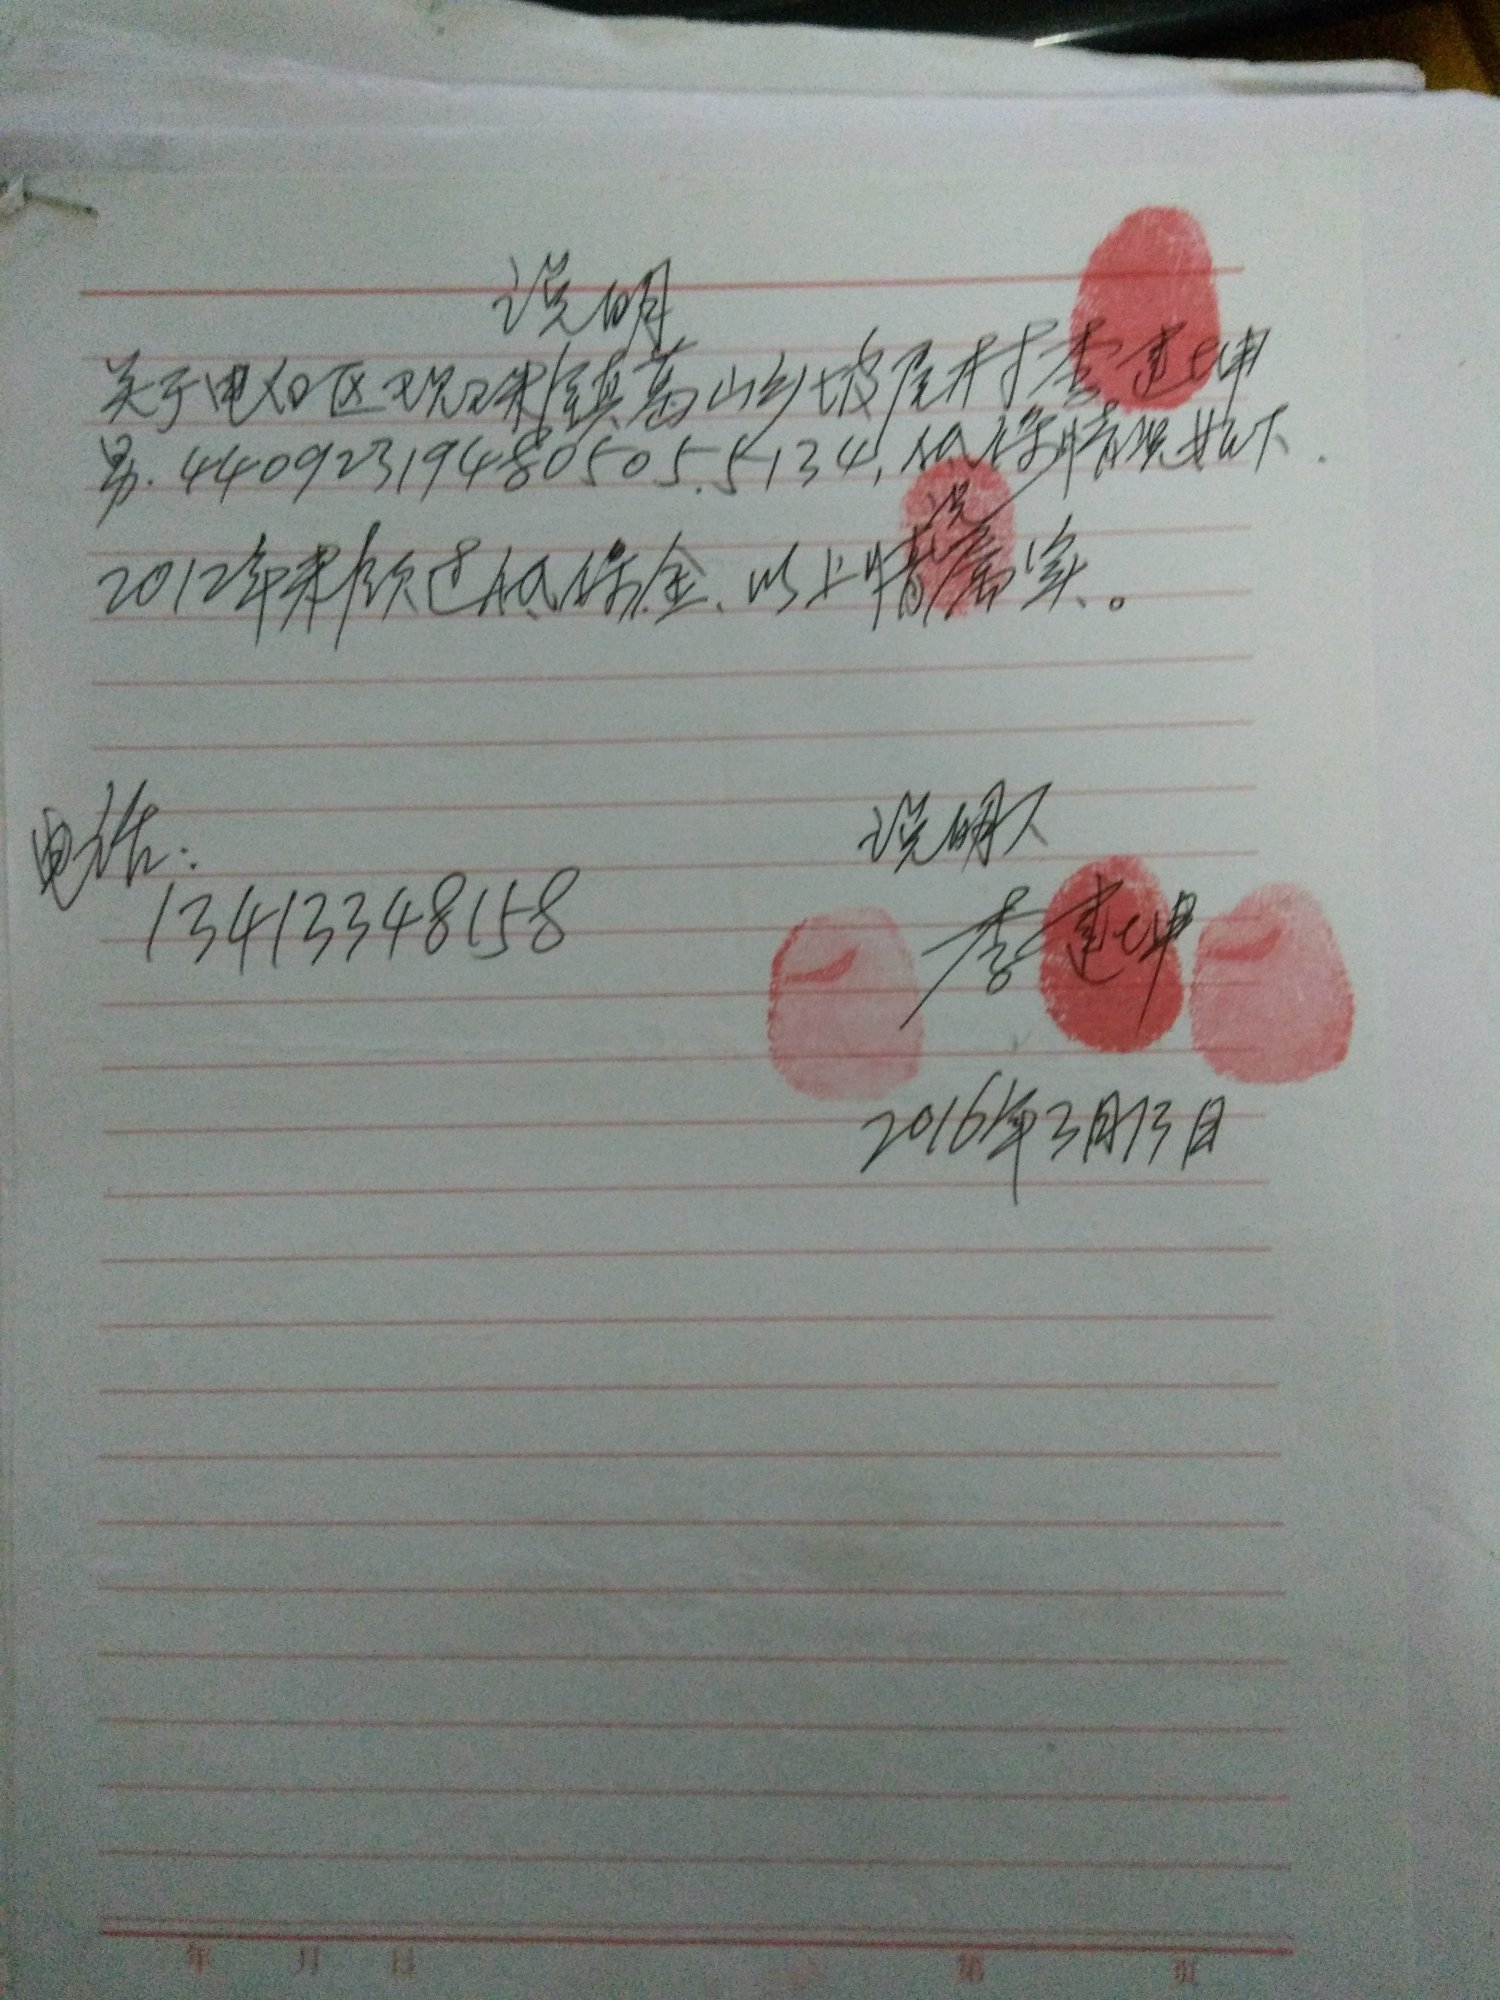 说明
关于电白区观珠镇葛山乡坡尾村李建坤
男.440923194805055134,低保情况如下.
2012年未领过低保金、以上情况属实。
电话:
13413348158
说明人
李建坤
2016年3月13日
年 月 日 第 页